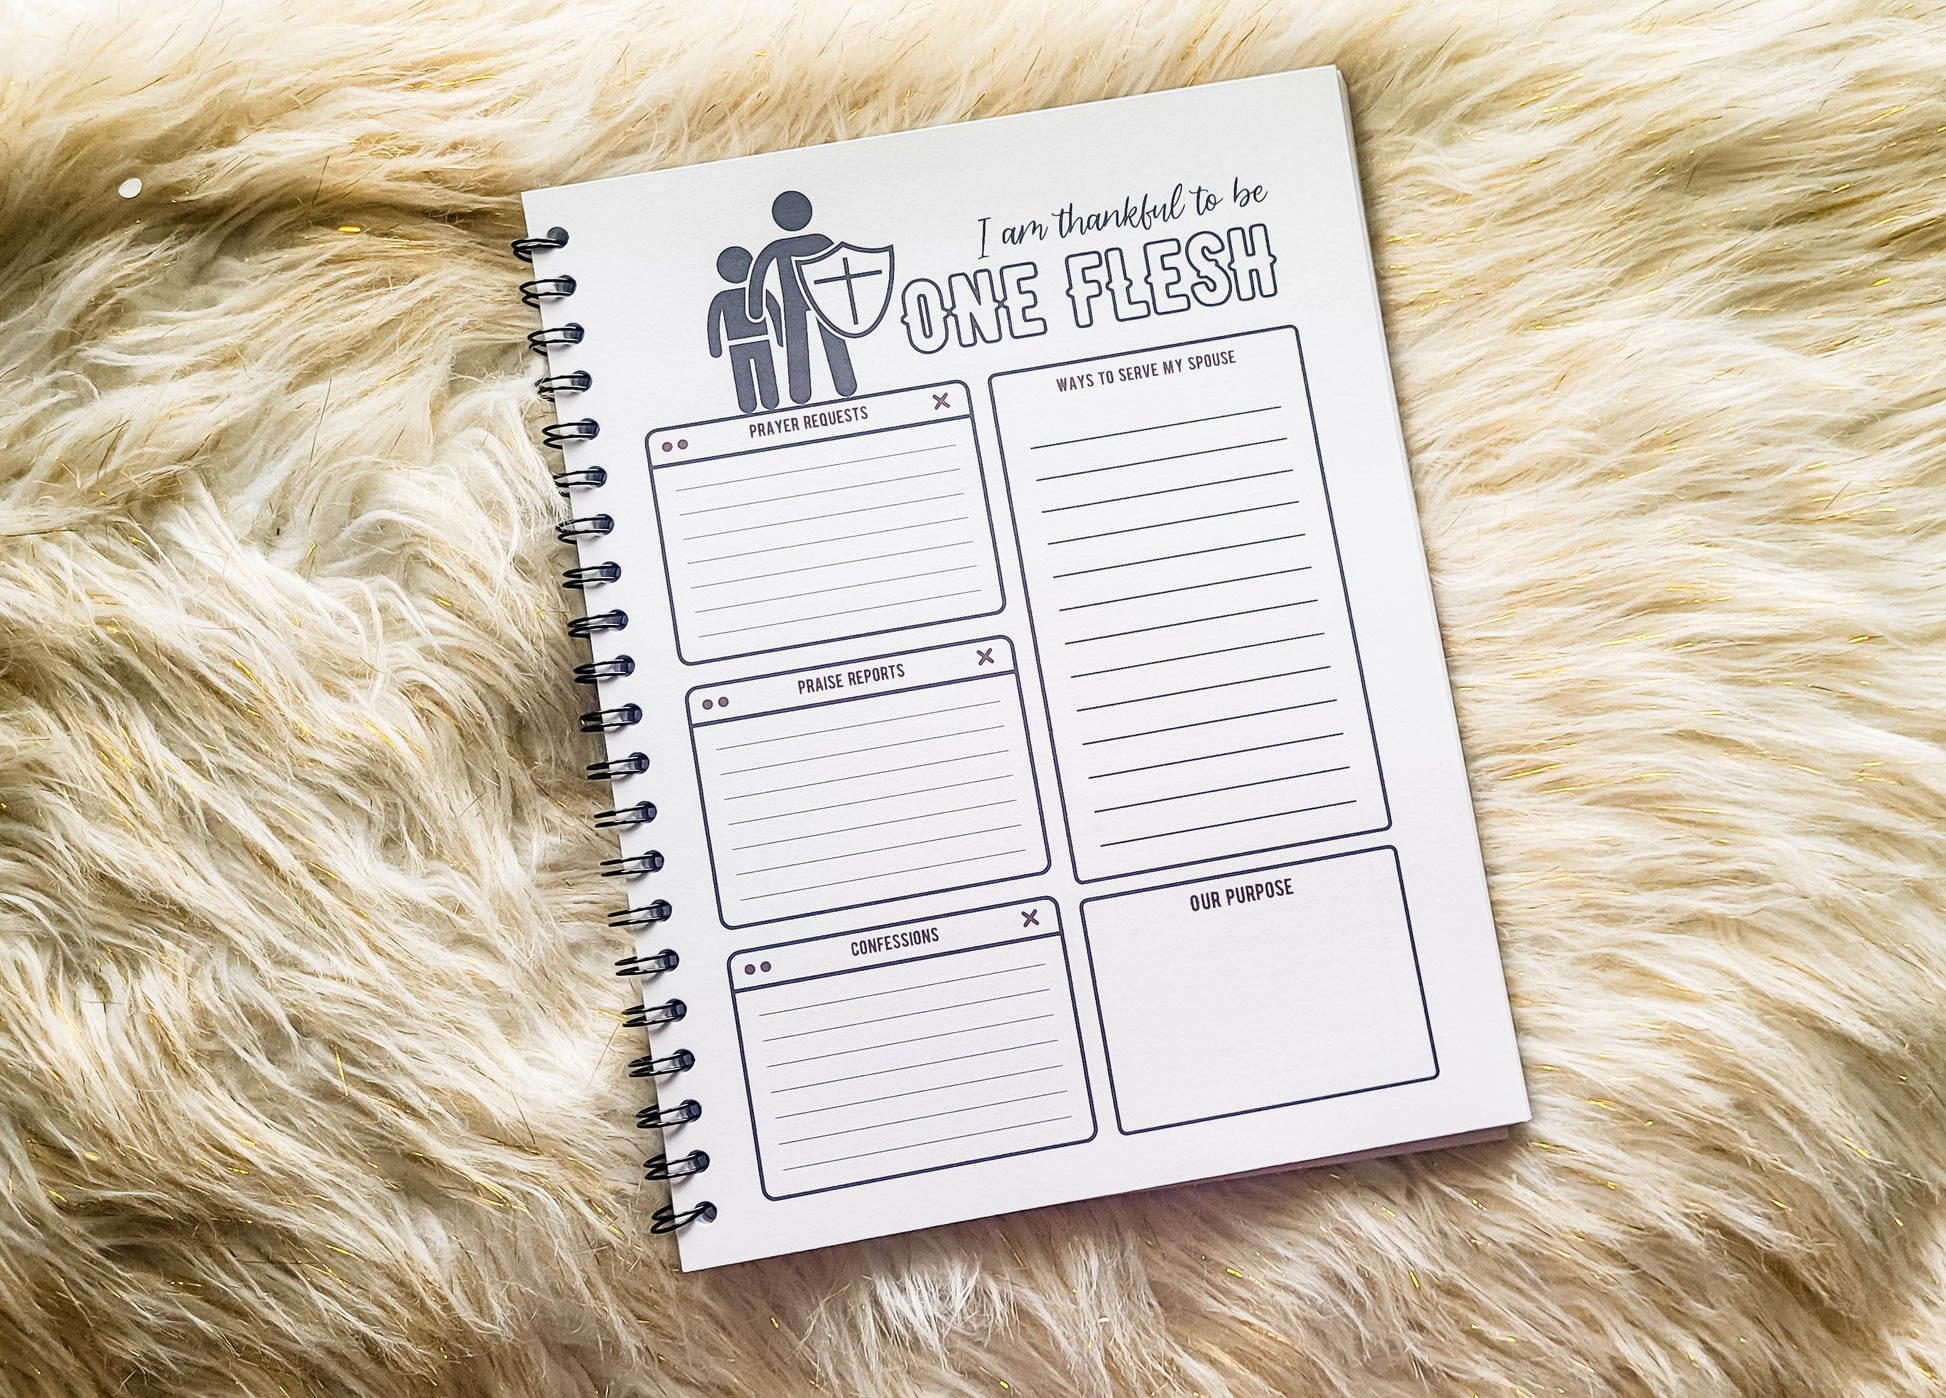 I am thankful to be
ONE FLESH
PRAYER REQUESTS
PRAISE REPORTS
CONFESSIONS
WAYS TO SERVE MY SPOUSE
OUR PURPOSE